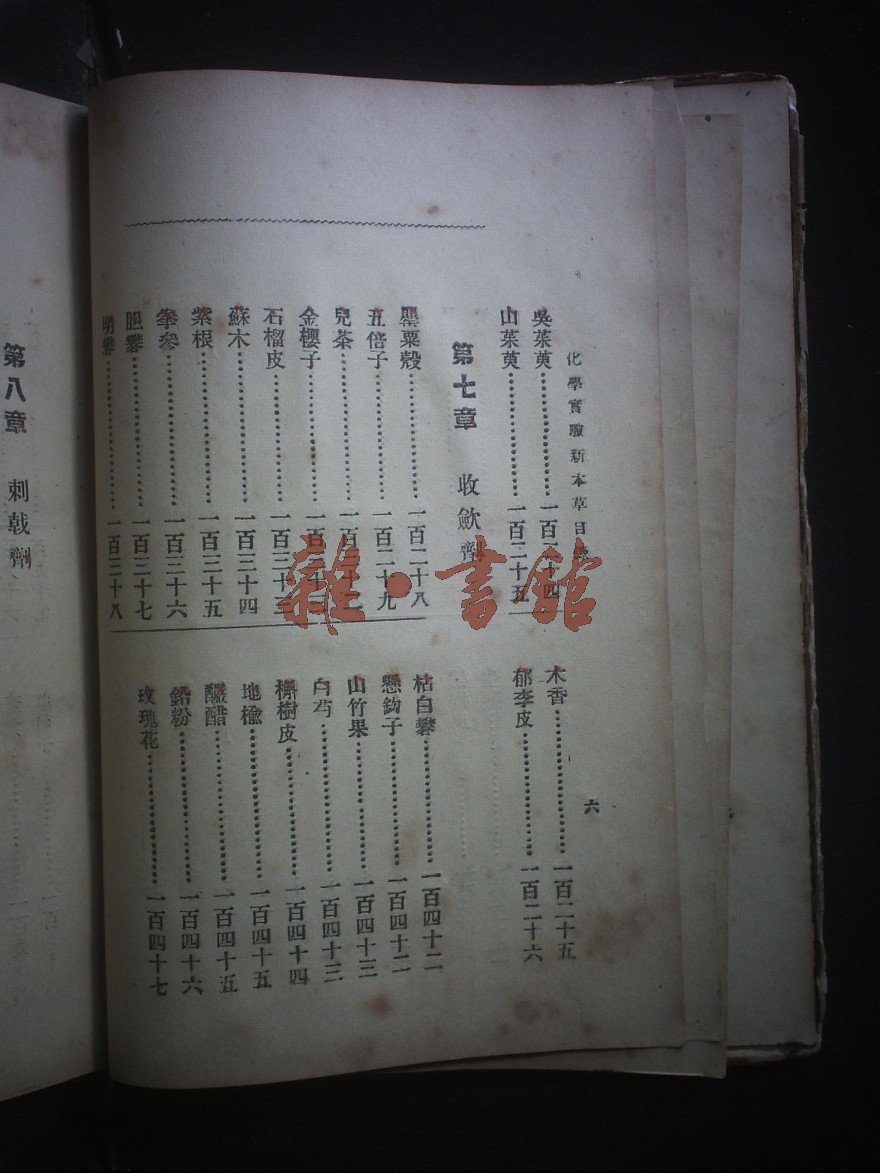 化學實驗新本草目錄
六
吳茱萸⋯⋯一百二十四
山茱萸⋯⋯一百二十五
木香⋯⋯一百二十五
郁李皮⋯⋯一百二十六
第七章 收歛劑
罌粟殼⋯⋯一百二十八
五倍子⋯⋯一百二十九
兒茶⋯⋯一百三十
金櫻子⋯⋯一百三十
石榴皮⋯⋯一百三十二
蘇木⋯⋯一百三十四
紫根⋯⋯一百三十五
拳參⋯⋯一百三十六
胆礬⋯⋯一百三十七
明礬⋯⋯一百三十八
枯白礬⋯⋯一百四十二
懸鈎子⋯⋯一百四十二
山竹果⋯⋯一百四十三
白芍⋯⋯一百四十三
槲樹皮⋯⋯一百四十四
地楡⋯⋯一百四十五
釅醋⋯⋯一百四十五
鉛粉⋯⋯一百四十六
玫瑰花⋯⋯一百四十七
第八章 刺戟劑
雜·書館